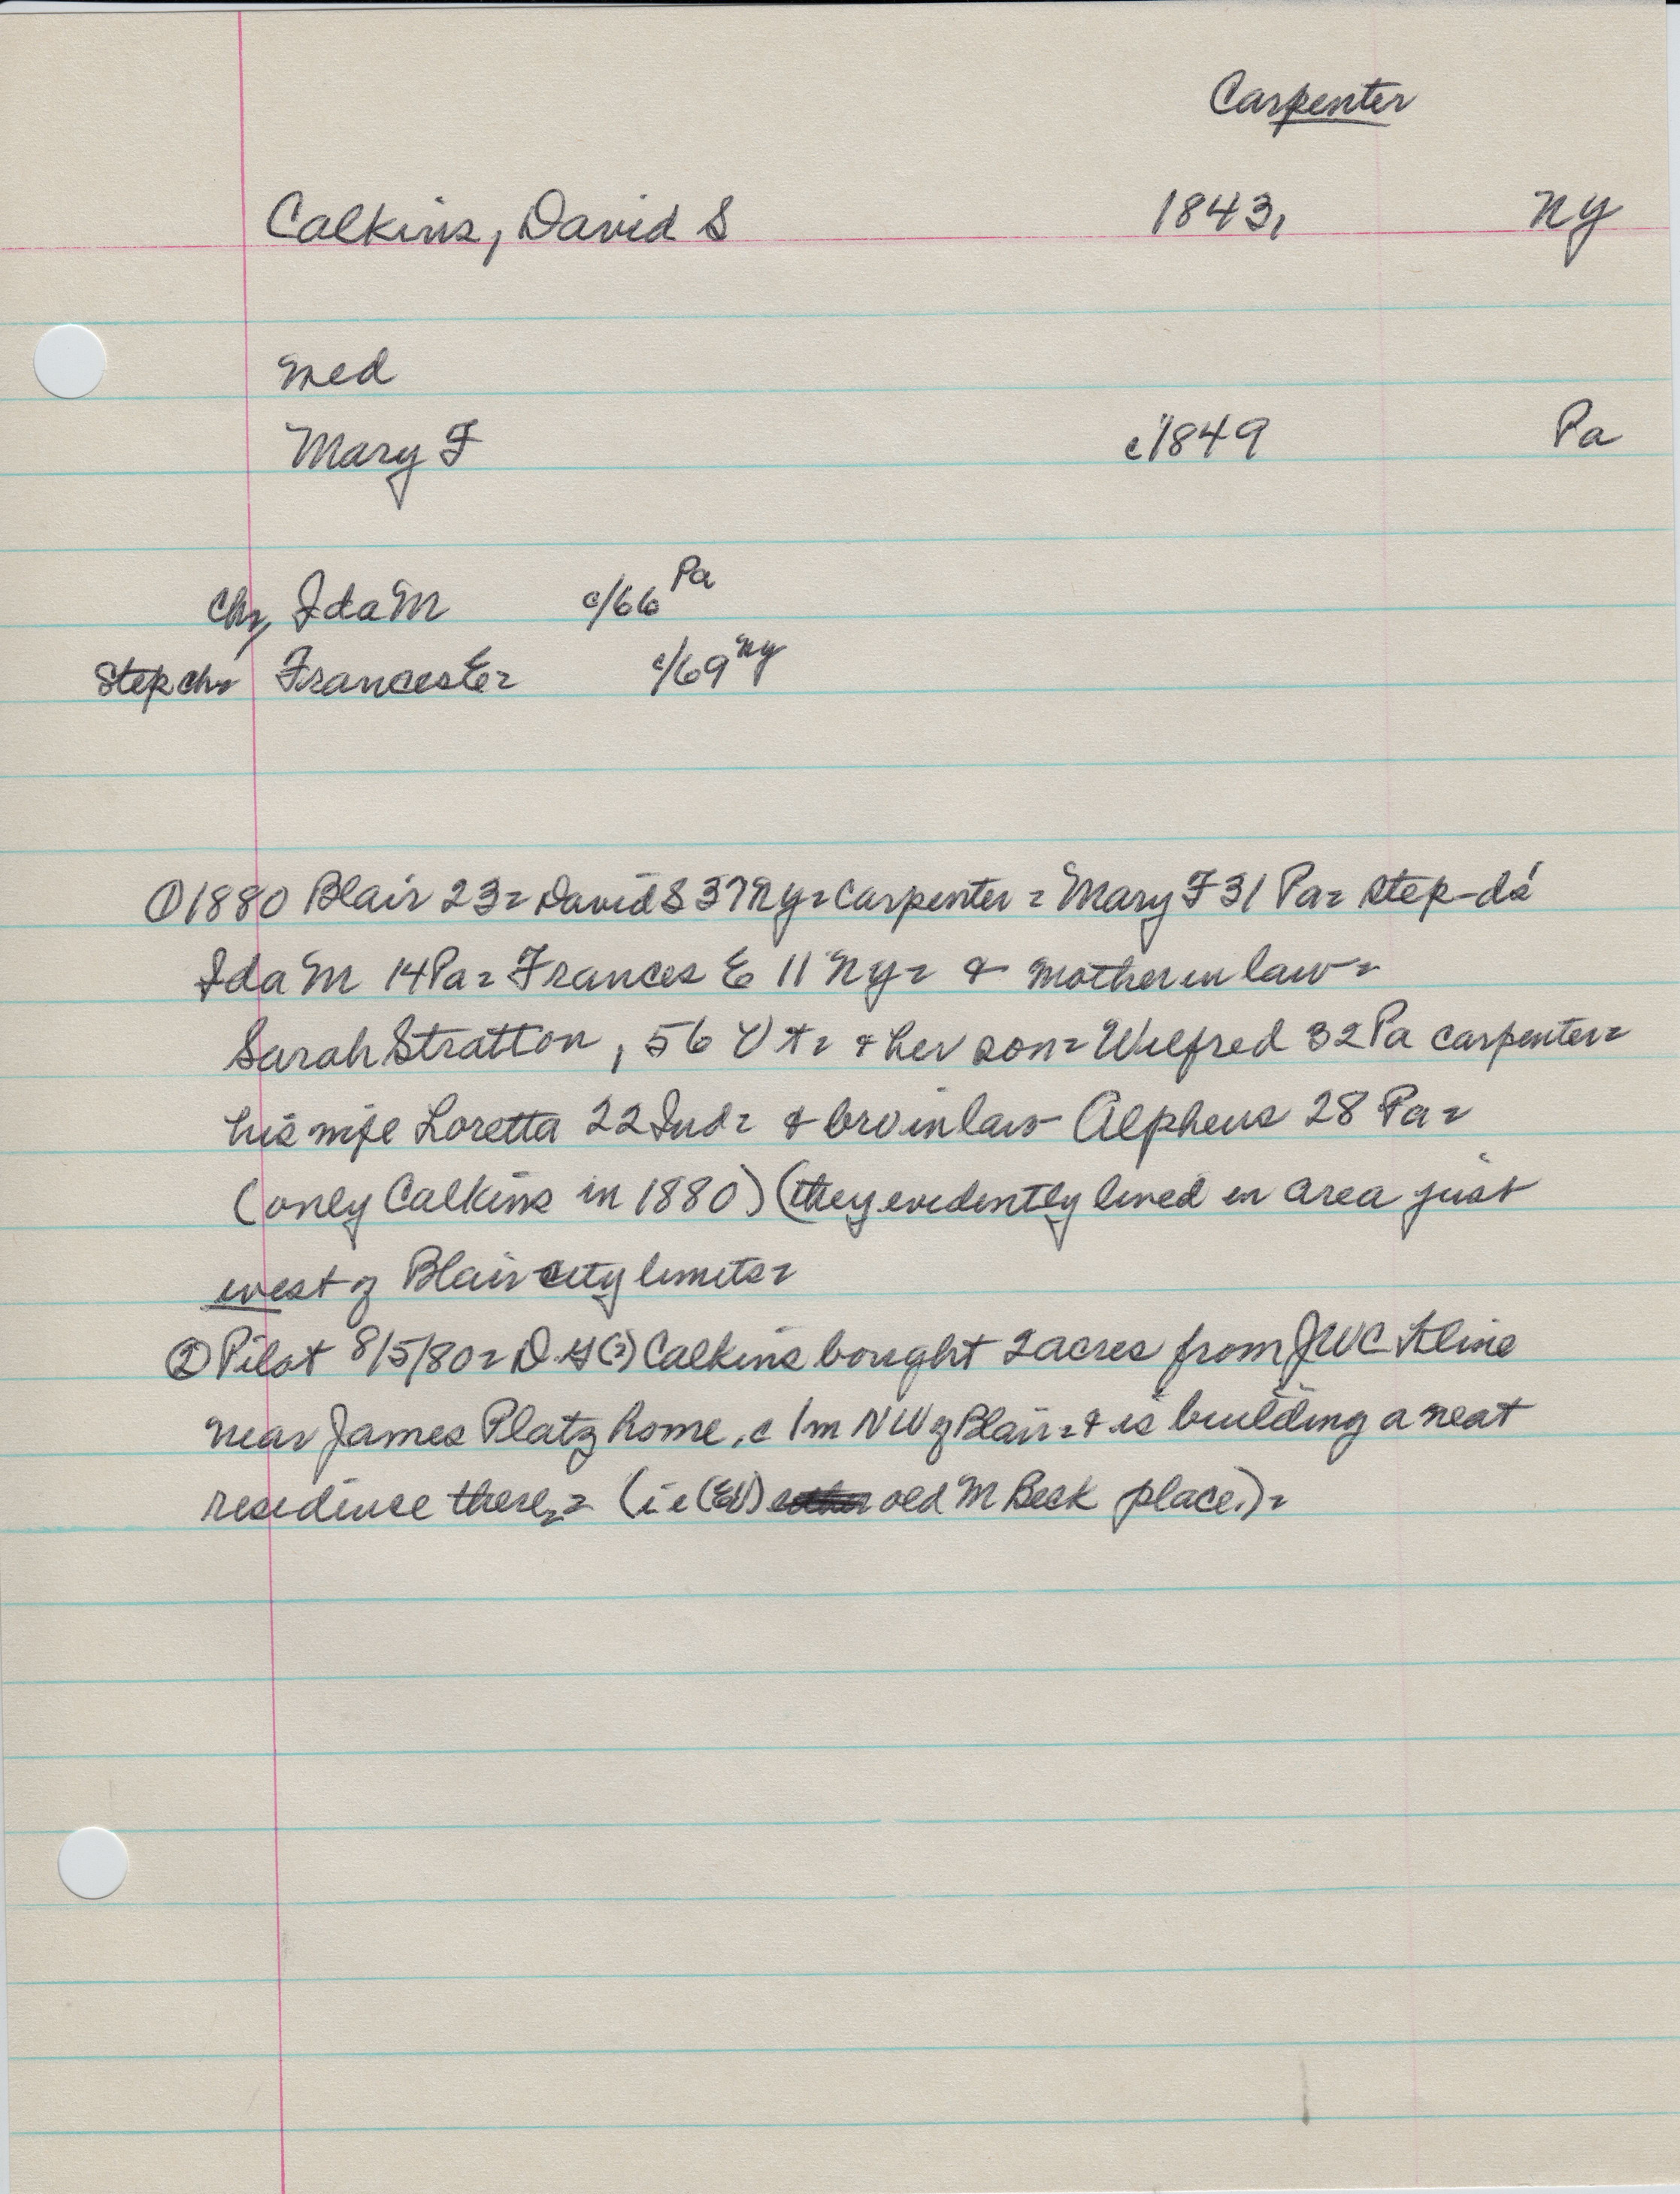 Carpenter
Calkins, David S 1843, NY
med
Mary F c1849 Pa
Ch, Ida M c/66 Pa
Step ch= Frances E= c/69 NY
① 1880 Blair 23= David S 37 NY= Carpenter = Mary F 31 Pa= step-da
Ida M 14 Pa= Frances E 11 NY= & mother in law=
Sarah Stratton, 56 Vt= & her son= Wilfred 32 Pa carpenter=
his wife Loretta 22 Ind= & bro in law Alpheus 28 Pa=
(only Calkins in 1880) (they evidently lived in area just
west of Blair city limits=
② Pilot 8/5/80= D.H(?) Calkins bought 2 acres from JWC Kline
near James Platz home, c 1m NW of Blair= & is building a neat
residence there,= (i e (Ed) old M Beck place.)=